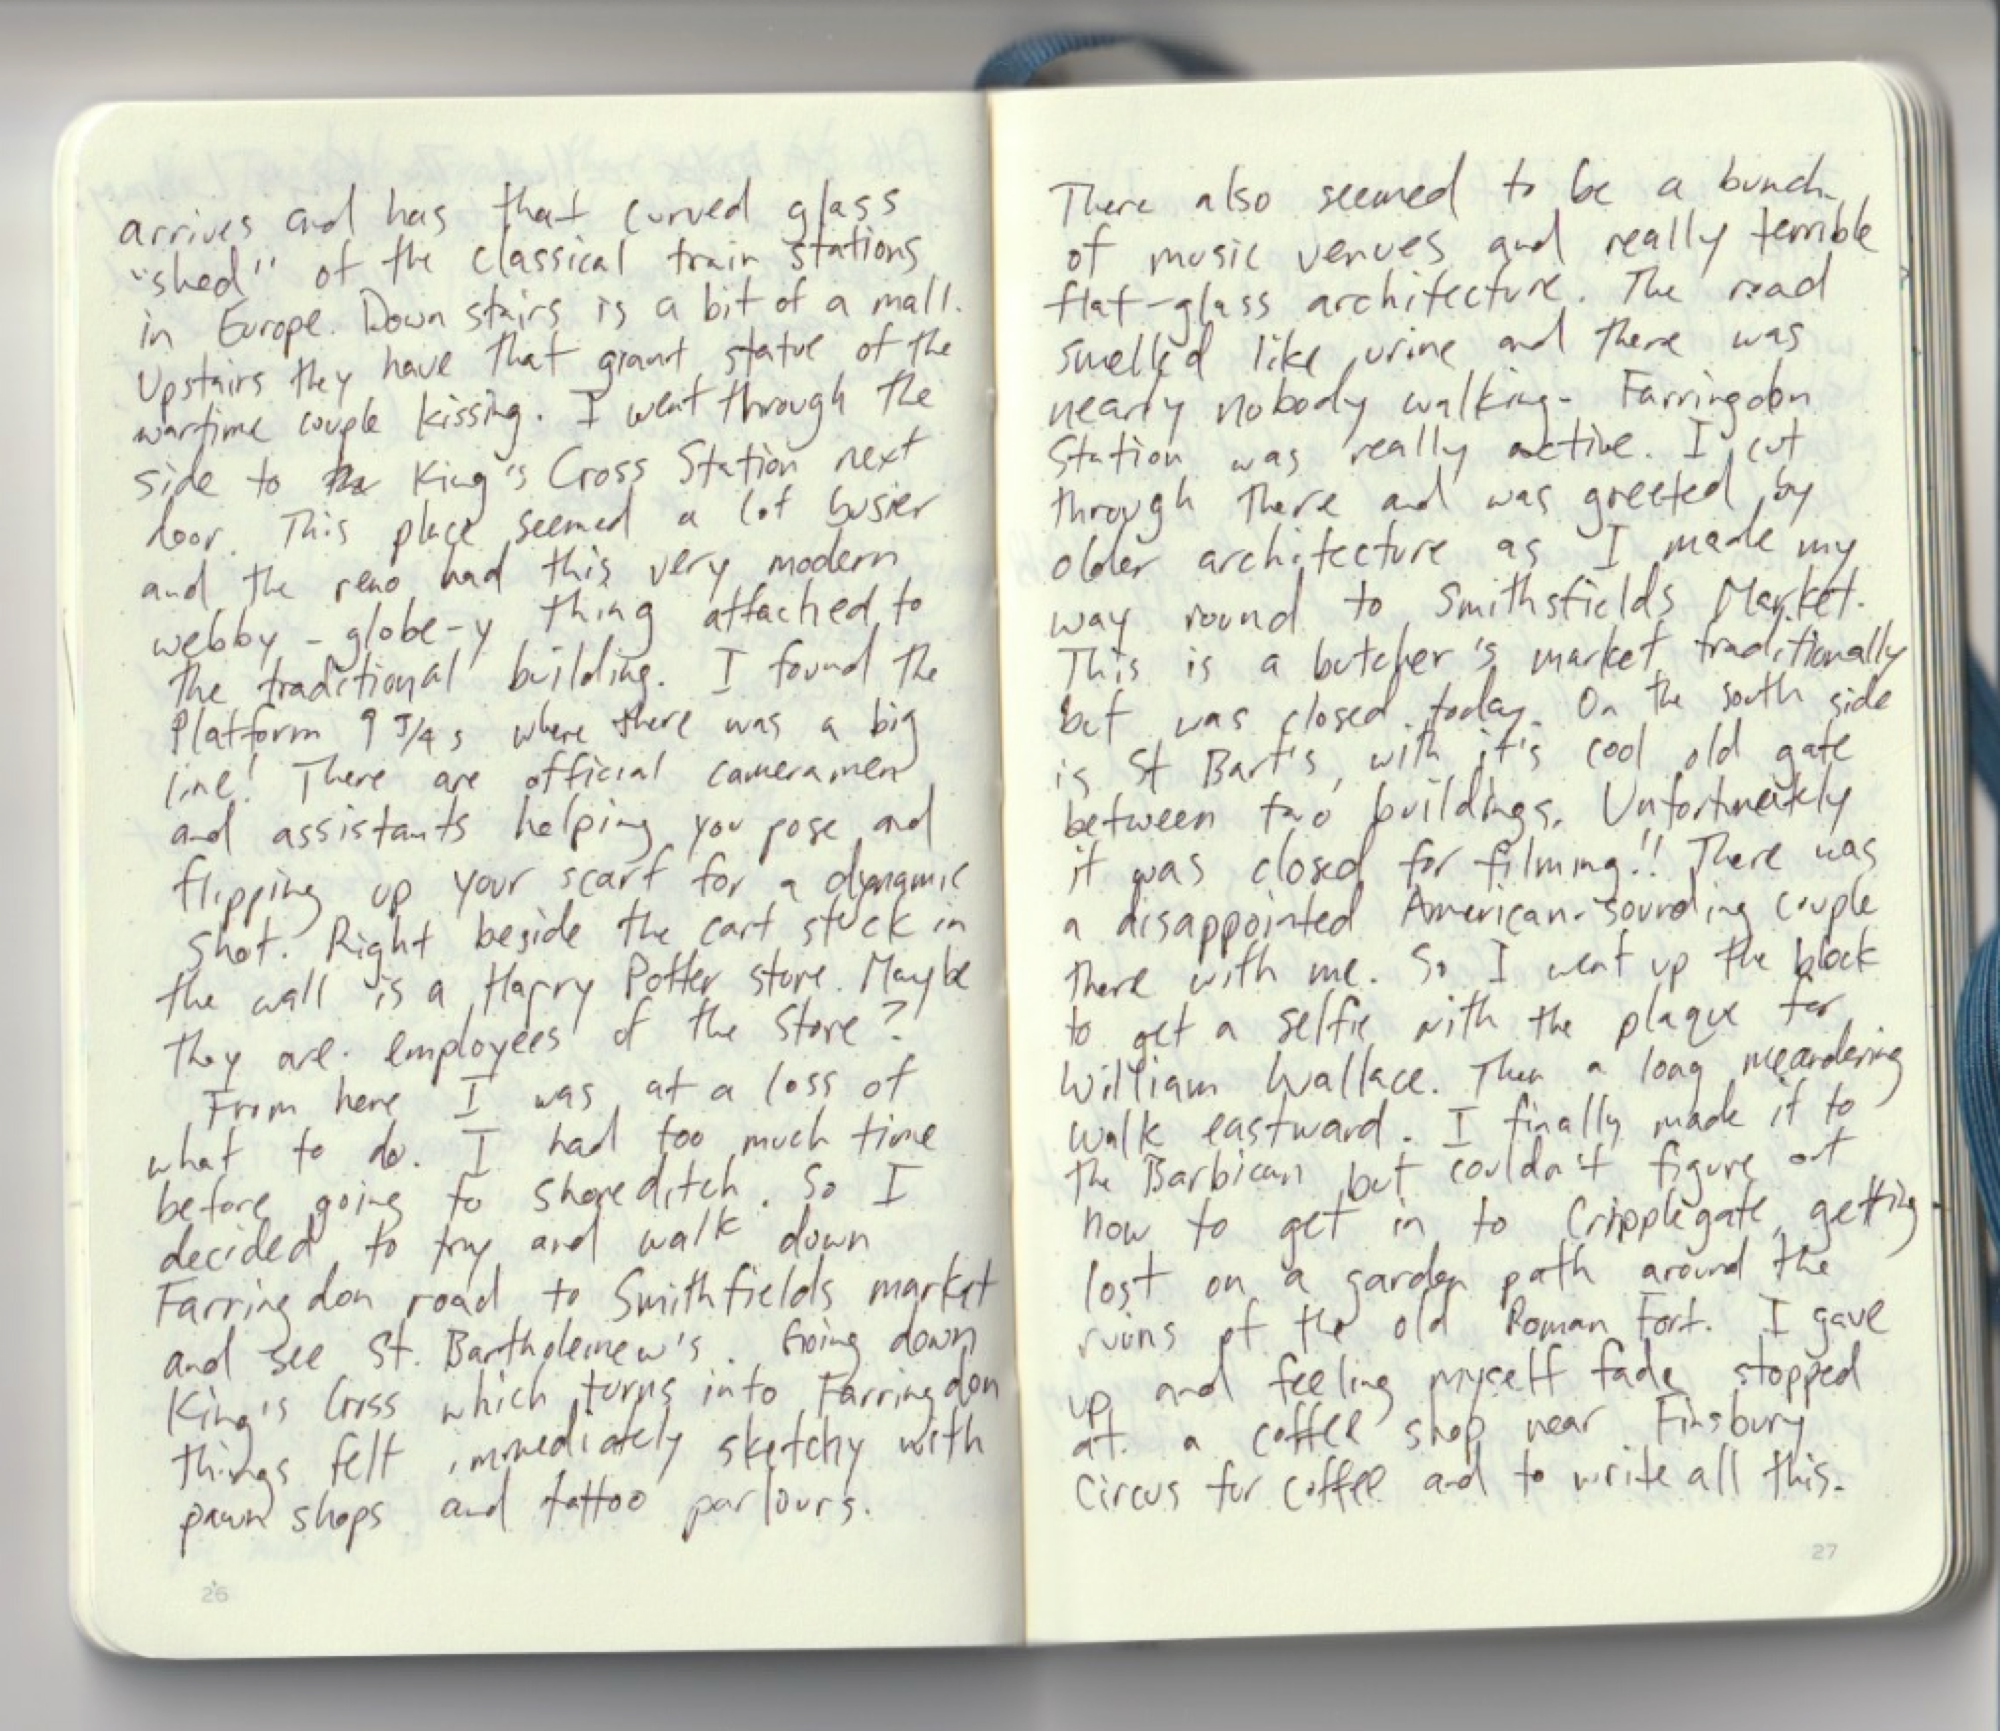 arrives and has that curved glass
"shed" of the classical train stations
in Europe. Down stairs is a bit of a mall.
Upstairs they have that giant statue of the
wartime couple kissing. I went through the
side to the King's Cross Station next
door. This place seemed a lot busier
and the reno had this very modern
webby-globe-y thing attached to
the traditional building. I found the
Platform 9 3/4s where there was a big
line! There are official cameramen
and assistants helping you pose and
flipping up your scarf for a dynamic
shot. Right beside the cart stuck in
the wall is a Harry Potter store. Maybe
they are employees of the store?
From here I was at a loss of
what to do. I had too much time
before going to Shoreditch. So I
decided to try and walk down
Farringdon road to Smithfields market
and see St. Bartholemew's. Going down
King's Cross which turns into Farringdon
things felt immediately sketchy with
pawn shops and tattoo parlours.
26
There also seemed to be a bunch
of music venues and really terrible
flat-glass architecture. The road
smelled like urine and there was
nearly nobody walking. Farringdon
Station was really active. I cut
through there and was greeted by
older architecture as I made my
way round to Smithsfields Market.
This is a butcher's market traditionally
but was closed today. On the south side
is St Bart's, with it's cool old gate
between two buildings. Unfortunately
it was closed for filming!! There was
a disappointed American-sounding couple
there with me. So I went up the block
to get a selfie with the plaque for
William Wallace. Then a long meandering
walk eastward. I finally made it to
the Barbican but couldn't figure out
how to get in to Cripplegate, getting
lost on a garden path around the
ruins of the old Roman Fort. I gave
up and feeling myself fade stopped
at a coffee shop near Finsbury
Circus for coffee and to write all this.
27